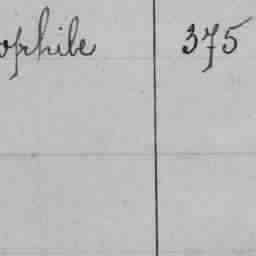 ophile 375